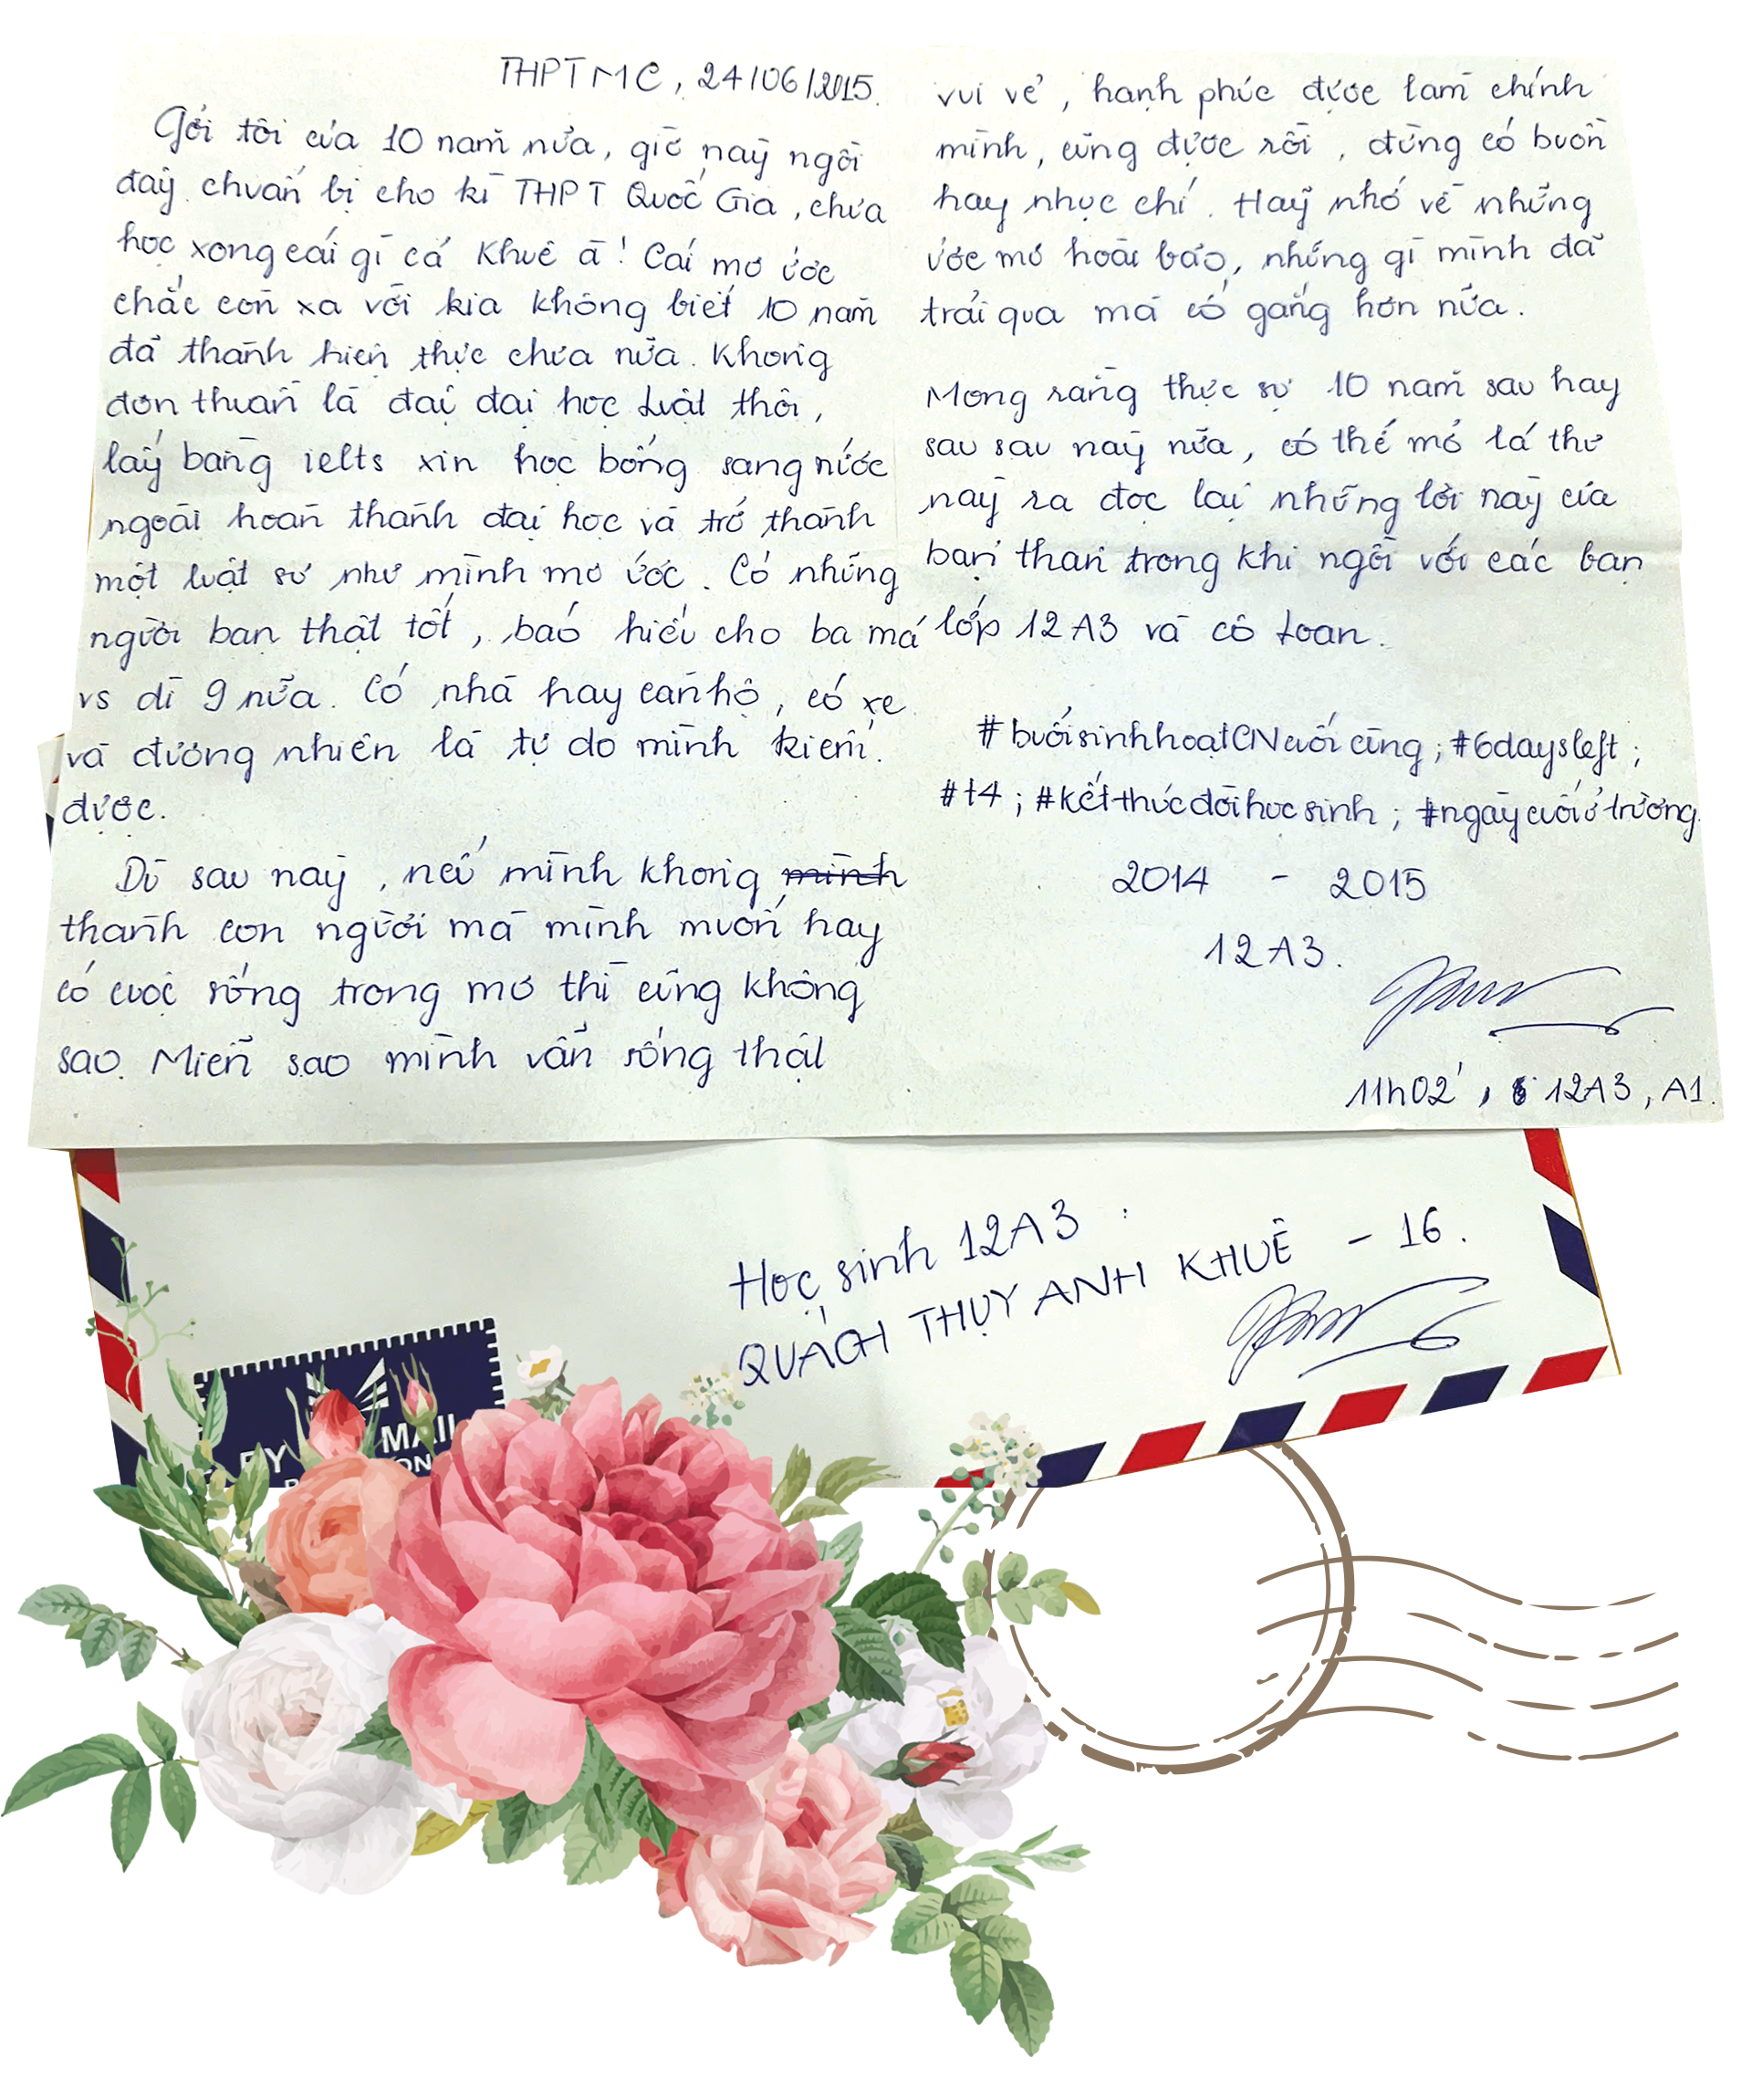 THPT MC, 24/06/2015.
Gởi tôi của 10 năm nữa, giờ này ngồi
đây chuẩn bị cho kì THPT Quốc Gia, chưa
học xong cái gì cả Khuê à! Cái mơ ước
chắc còn xa vời kia không biết 10 năm
đã thành hiện thực chưa nữa. Không
đơn thuần là đại đại học Luật thôi,
lấy bằng ielts xin học bổng sang nước
ngoài hoàn thành đại học và trở thành
một luật sư như mình mơ ước. Có những
người bạn thật tốt, báo hiếu cho ba má
vs dì 9 nữa. Có nhà hay căn hộ, có xe
và đương nhiên là tự do mình kiếm
được.
Dù sau này, nếu mình không minh
thành con người mà mình muốn hay
có cuộc sống trong mơ thì cũng không
sao. Miễn sao mình vẫn sống thật
vui vẻ, hạnh phúc được làm chính
mình, cũng được rồi, đừng có buồn
hay nhục chí. Hãy nhớ về những
ước mơ hoài bão, những gì mình đã
trải qua mà cố gắng hơn nữa.
Mong rằng thực sự 10 năm sau hay
sau sau này nữa, có thể mở lá thư
này ra đọc lại những lời này của
bản thân trong khi ngồi với các bạn
lớp 12A3 và cô Loan.
#buổisinhhoạtCNcuối cùng; #6daysleft;
#t4; #kếtthúcđờihọcsinh; #ngàycuốiởtrường
2014 - 2015
12A3.
11h02', 12A3, A1.
Học sinh 12A3:
QUÁCH THỤY ANH KHUÊ - 16.
MAIL